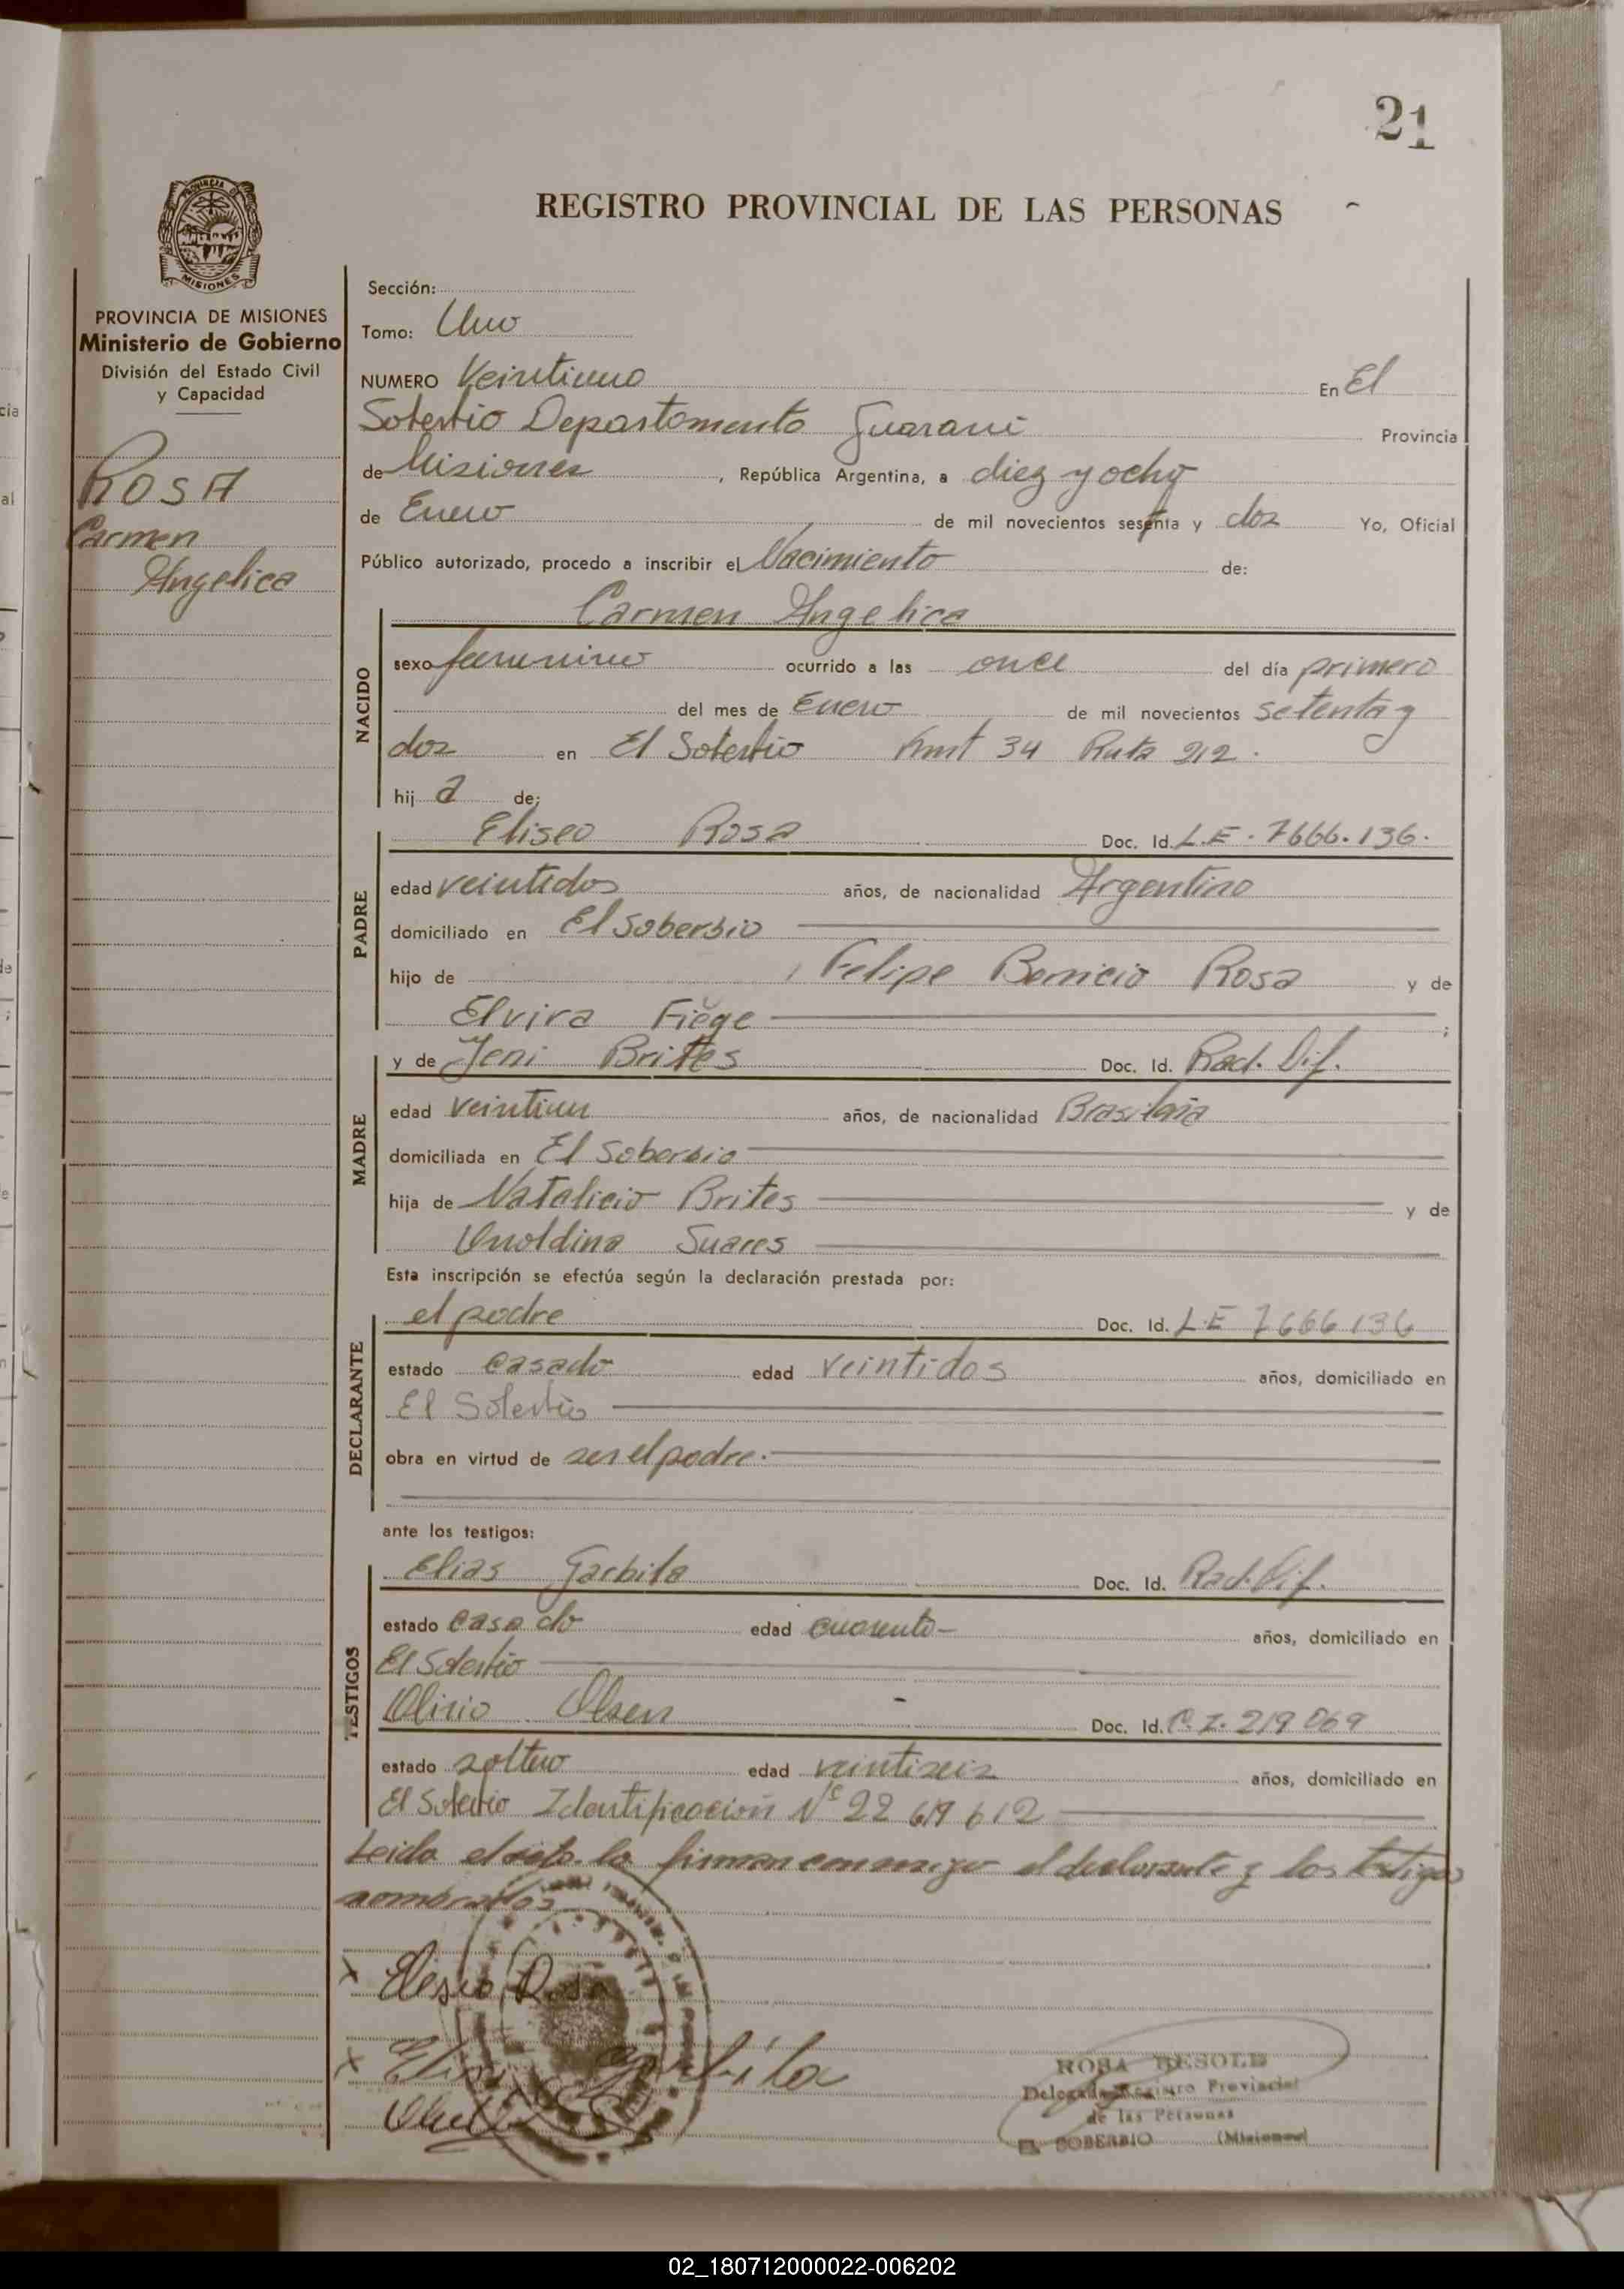 21
REGISTRO PROVINCIAL DE LAS PERSONAS
PROVINCIA DE
MISIONES
PROVINCIA DE MISIONES
Ministerio de Gobierno
División del Estado Civil
y Capacidad
ROSA
Carmen
Angelica
Sección:
Tomo: Uno
NUMERO Veintiuno En El
Soberbio Departamento Guarani Provincia
de Misiones, República Argentina, a diez y ocho
de Enero de mil novecientos sesenta y dos Yo, Oficial
Público autorizado, procedo a inscribir el Nacimiento de:
Carmen Angelica
NACIDO
sexo femenino ocurrido a las once del día primero
del mes de Enero de mil novecientos setenta y
dos en El Soberbio Kmt 34 Ruta 212.
hij a de:
PADRE
Eliseo Rosa Doc. Id. L.E. 7666.136.
edad veintidos años, de nacionalidad Argentino
domiciliado en El Soberbio
hijo de Felipe Bernicio Rosa y de
Elvira Fiege ;
MADRE
y de Jeni Brites Doc. Id. Rad. Dif.
edad veintiun años, de nacionalidad Brasileña
domiciliada en El Soberbio
hija de Natalicio Brites y de
Suares
Esta inscripción se efectúa según la declaración prestada por:
DECLARANTE
el padre Doc. Id. L.E 7666136
estado casado edad veintidos años, domiciliado en
El Soberbio
obra en virtud de ser el padre.
ante los testigos:
TESTIGOS
Elias Garbila Doc. Id. Rad. Dif.
estado casado edad cuarenta- años, domiciliado en
El Soberbio
Olirio Olsen Doc. Id. C.I. 219 069
estado soltero edad veintiseis años, domiciliado en
El Soberbio Identificación Nº 22 619 612
Leida el acta la firman conmigo el declarante y los testigos
nombrados
x Eliseo Rosa
x Elias Garbila
ROSA RESOLE
Delegada Registro Provincial
de las Personas
EL SOBERBIO (Misiones)
02_180712000022-006202